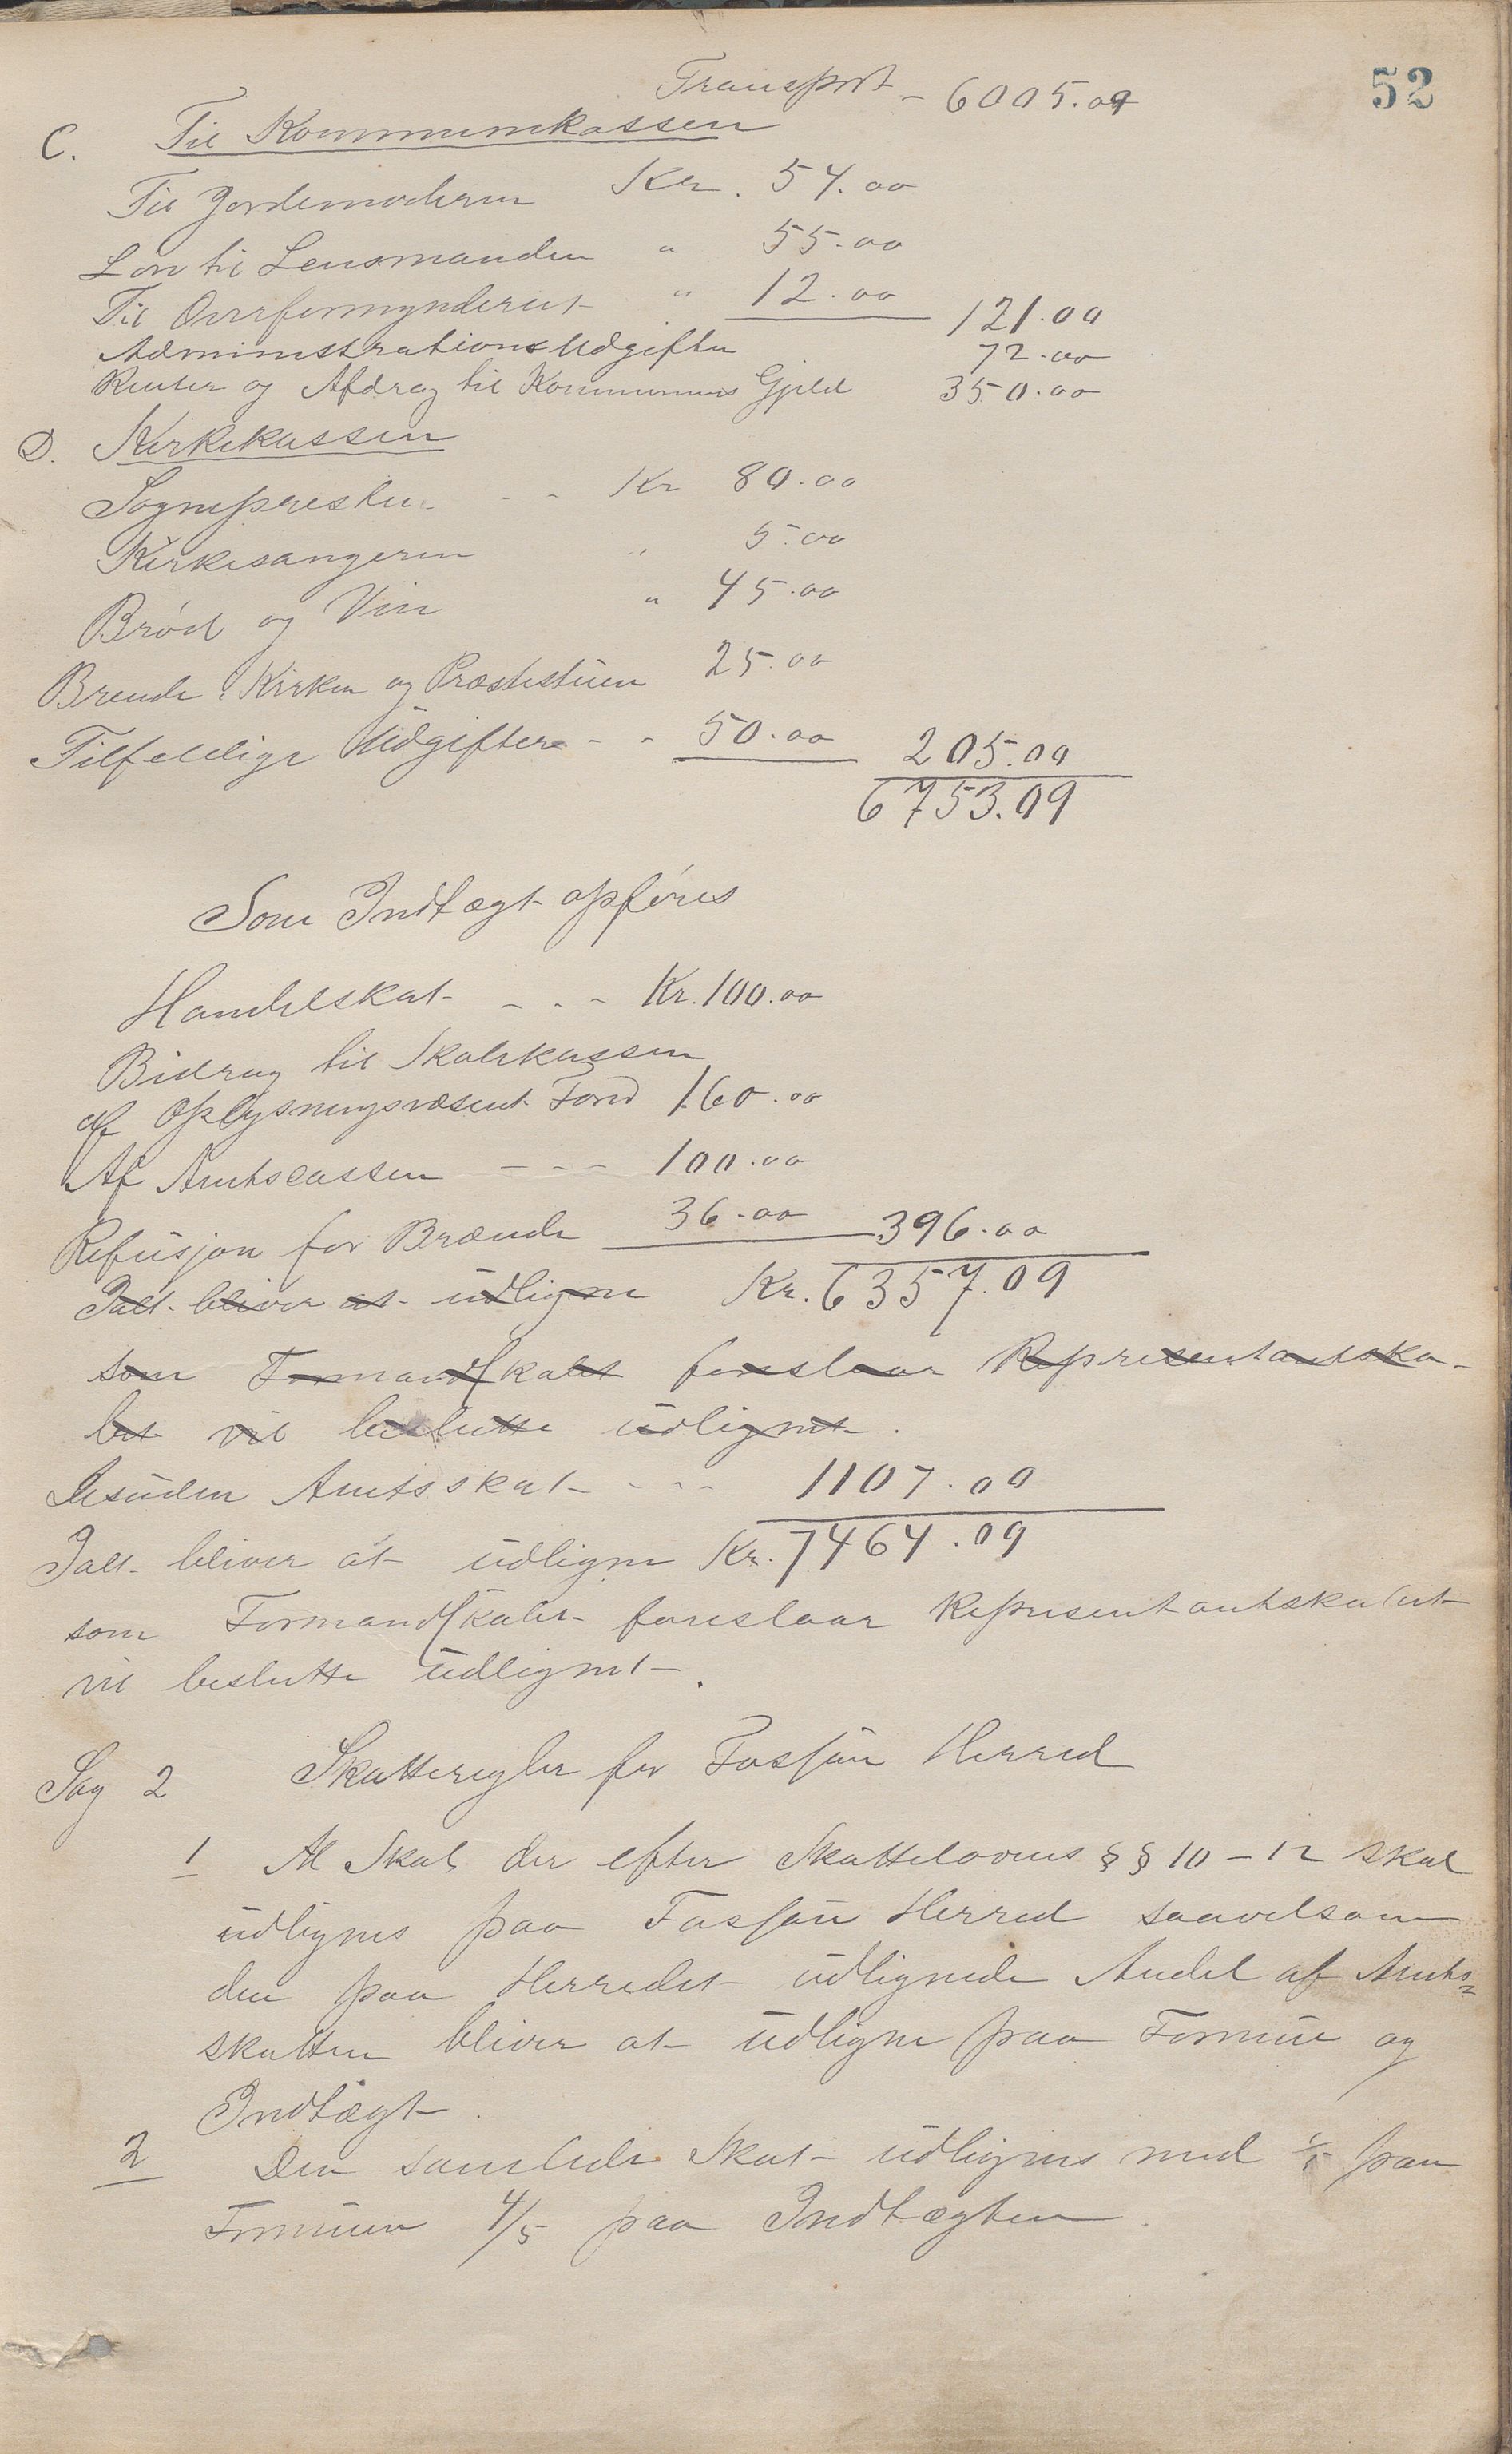 52
Transport - 6005.09
C. Til Kommunekassen
Til Jordemoderen Kr. 54.00
Løn til Lensmanden " 55.00
Til Overformynderiet " 12.00 121.00
Administrations Udgifter 72.00
Renter og Afdrag til Kommunens Gjeld 350.00
D. Kirkekassen
Sognepresten - - Kr 80.00
Kirkesangeren " 5.00
Brød og Vin " 45.00
Brende i Kirken og Præstestuen 25.00
Tilfeldige Udgifter - - 50.00 205.00
6753.09
Som Indtægt opføres
Handelskat - - - Kr. 100.00
Bidrag til Skolekassen
af Oplysningsvæsent Fond 160.00
Af Amtscassen - - - 100.00
Refusjon for Brænde 36.00 396.00
Ialt bliver at udligne Kr. 6357.09
som Formandskabet foreslaar Representantska-
bet vil beslutte udlignet.
Desuden Amtsskat - - - 1107.00
Ialt bliver at udligne Kr. 7464.09
som Formandskabet foreslaar Representantskabet
vil beslutte udlignet.
Sag 2 Skatteregler for Fosnæs Herred
1 Al Skat der efter Skattelovens §§ 10-12 skal
udlignes paa Herred saavelsom
den paa Herredet udlignede Andel af Amts=
skatten bliver at udligne paa Formue og
Indtægt.
2 Den samlede Skat udlignes med 1/5 paa
Formuen 4/5 paa Indtægten.